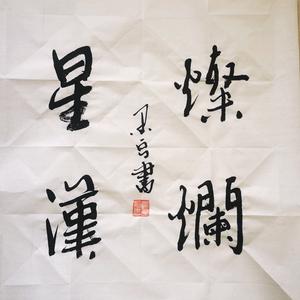 燦爛
星漢
書